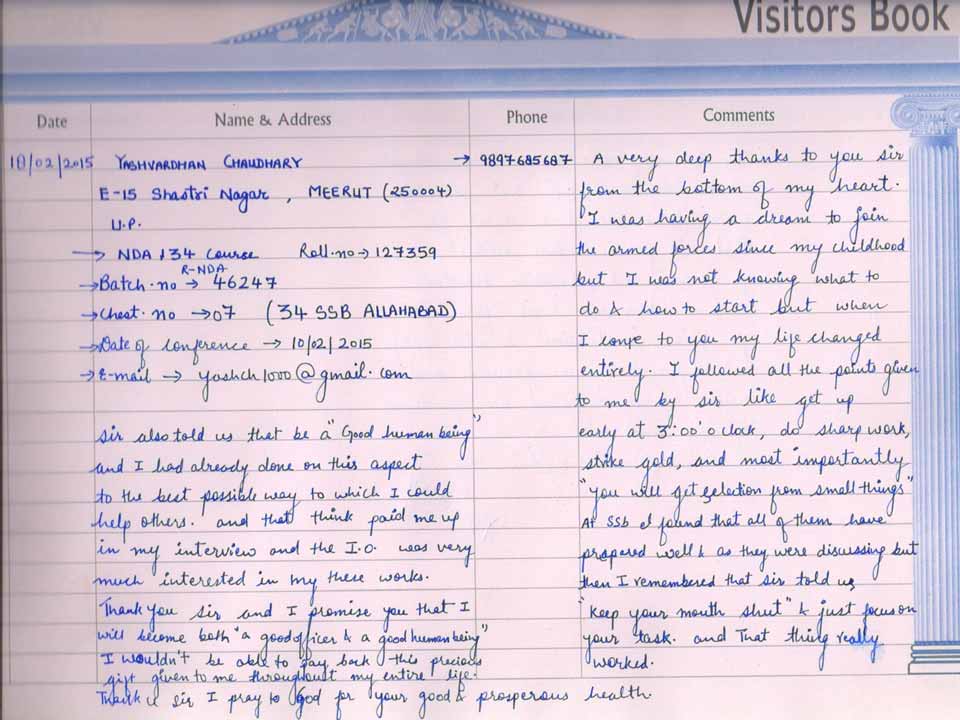 Visitors Book
Date Name & Address Phone Comments
10/02/2015 YASHVARDHAN CHAUDHARY → 9897685687
E-15 Shastri Nagar, MEERUT (250004)
U.P.
→ NDA 134 Course Roll.no → 127359
R-NDA
→ Batch.no → 46247
→ Chest.no → 07 (34 SSB ALLAHABAD)
→ Date of conference → 10/02/2015
→ E-mail → yashch1000@gmail.com
A very deep thanks to you sir
from the bottom of my heart.
"I was having a dream to join
the armed forces since my childhood
but I was not knowing what to
do & how to start but when
I come to you my life changed
entirely. I followed all the points given
to me by sir like get up
early at 3:00'o clock, do sharp work,
strike gold, and most importantly
"you will get selection from small things"
At SSB I found that all of them have
prepared well & as they were discussing but
then I remembered that sir told us,
"Keep your mouth shut" & just focus on
your task. and That thing really
worked.
Sir also told us that be a "Good human being"
and I had already done on this aspect
to the best possible way to which I could
help others. and that think paid me up
in my interview and the I.O. was very
much interested in my these works.
Thank you sir and I promise you that I
will become both "a good officer & a good human being"
I wouldn't be able to pay back this precious
gift given to me throughout my entire life.
Thank u sir I pray to God for your good & prosperous health.